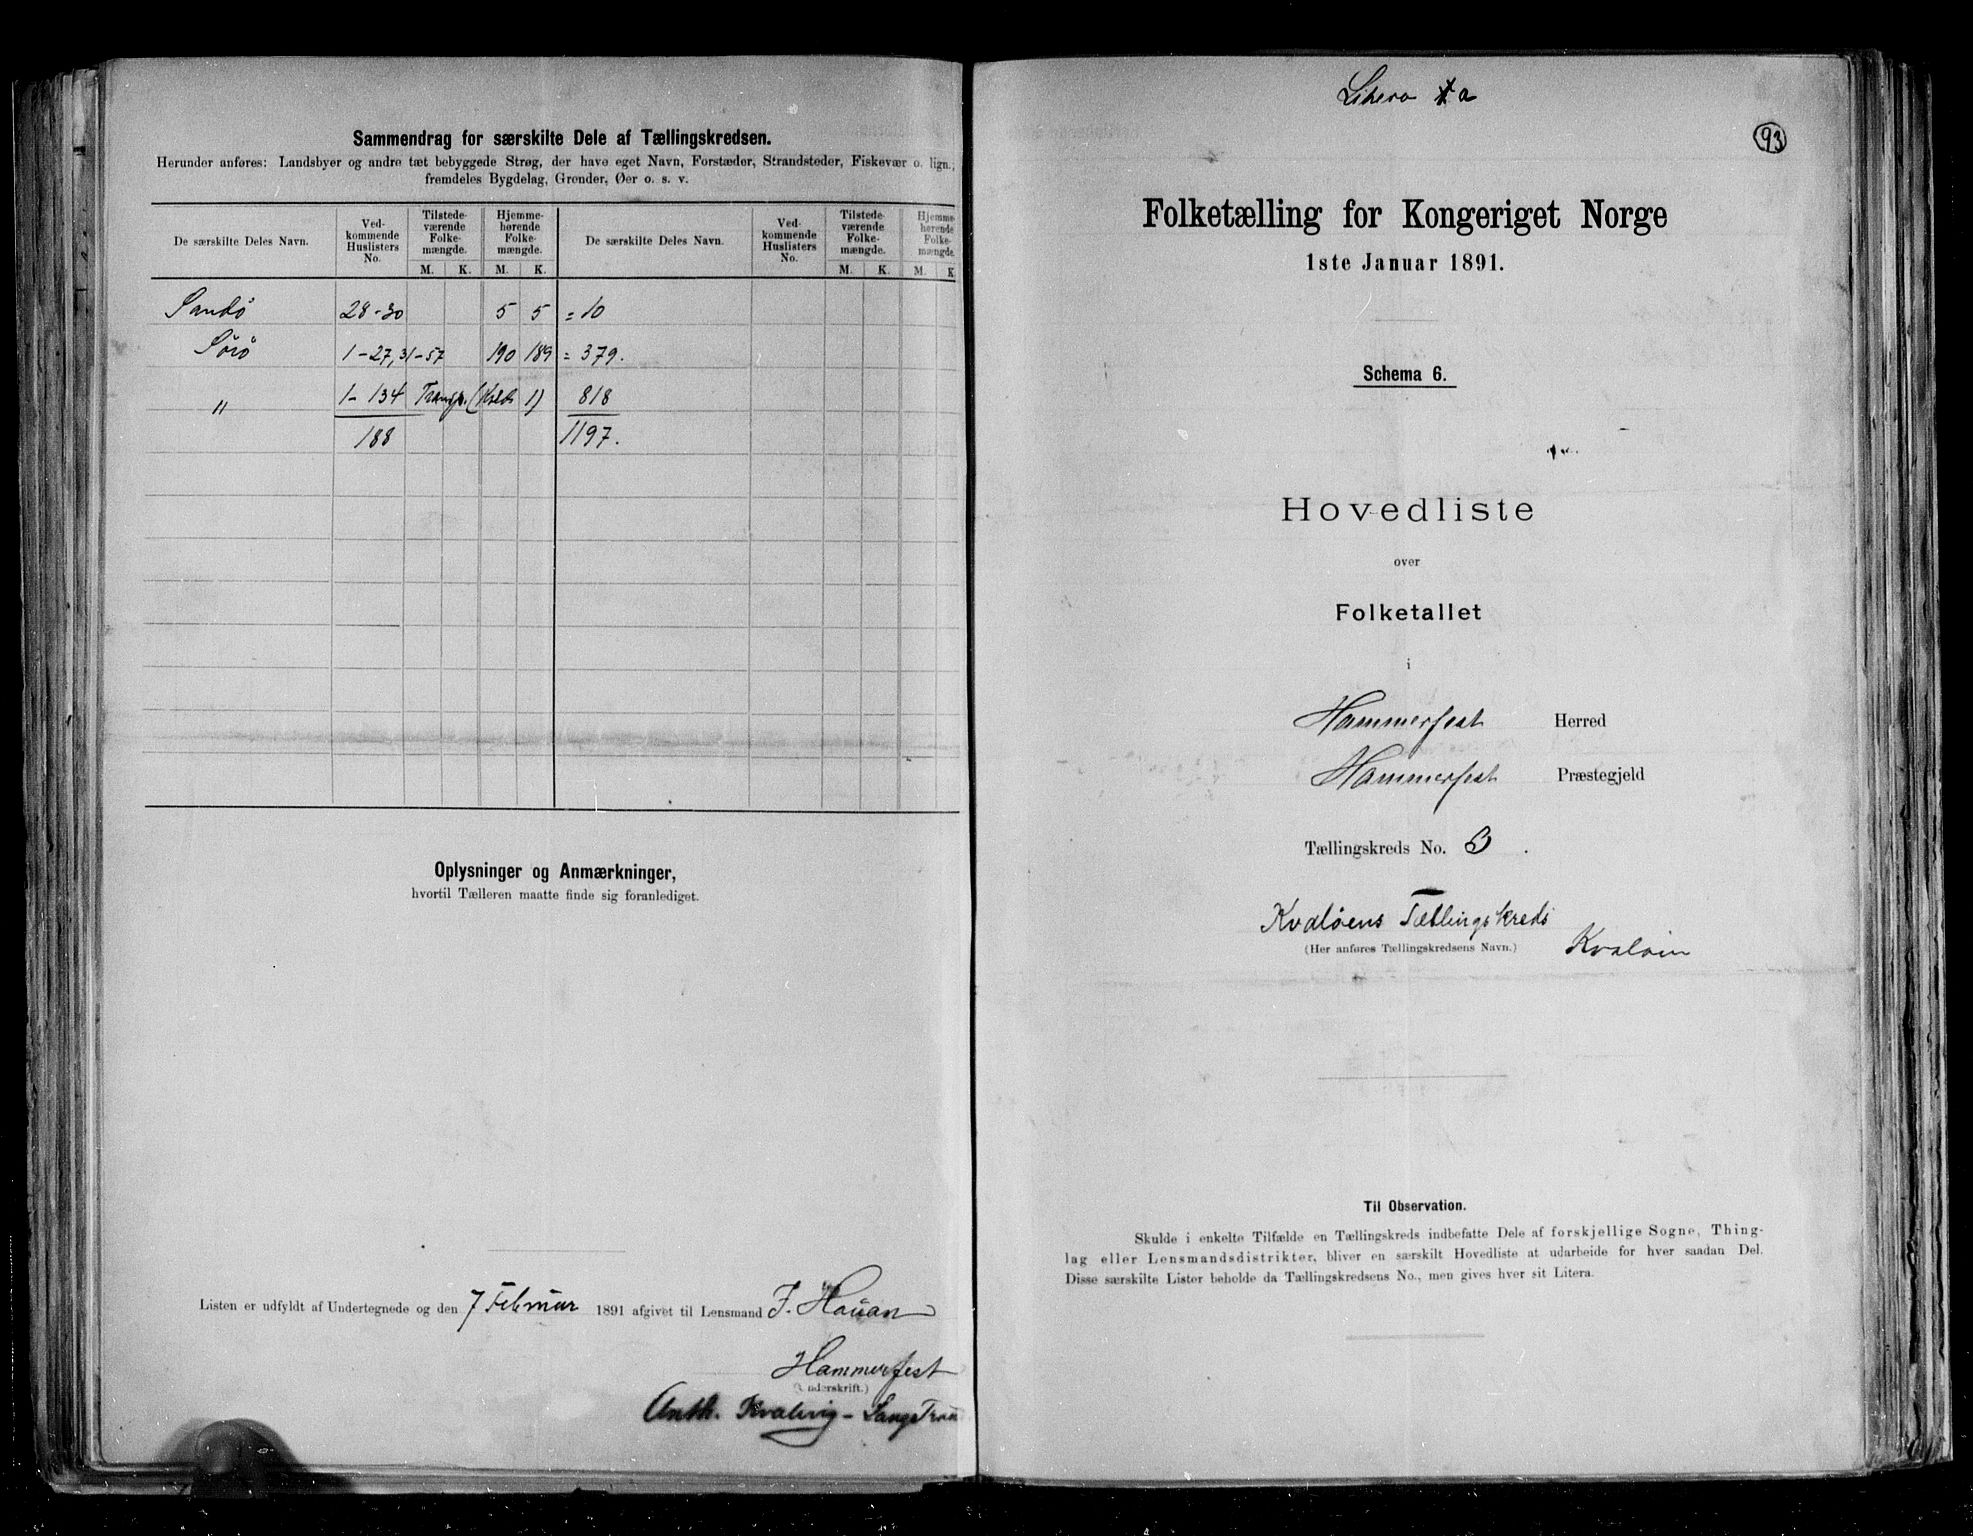 Sammendrag for særskilte Dele af Tællingskredsen.
Herunder anføres: Landsbyer og andre tæt bebyggede Strøg, der have eget Navn, Forstæder, Strandsteder, Fiskevær o. lign.,
fremdeles Bygdelag, Grender, Øer o. s. v.
De særskilte Deles Navn. Ved-kommende Huslisters No. Tilstede-værende Folke-mængde. Hjemme-hørende Folke-mængde. De særskilte Deles Navn. Ved-kommende Huslisters No. Tilstede-værende Folke-mængde. Hjemme-hørende Folke-mængde.
M. K. M. K. M. K. M. K.
Sandö 28-30 5 5 = 10
Sörö 1-27, 31-57 190 189 = 379.
" 1-134 Transp. (Kreds 1) 818
188 1197.
Oplysninger og Anmærkninger,
hvortil Tælleren maatte finde sig foranlediget.
Listen er udfyldt af Undertegnede og den 7 Februar 1891 afgivet til Lensmand F. Hauan
Hammerfest
(Underskrift.)
Anth. Kvalvig -
Litera a
93
Folketælling for Kongeriget Norge
1ste Januar 1891.
Schema 6.
Hovedliste
over
Folketallet
i
Hammerfest Herred
Hammerfest Præstegjeld
Tællingskreds No. 3.
Kvalöens Tællingskreds
(Her anføres Tællingskredsens Navn.) Kvalöen
Til Observation.
Skulde i enkelte Tilfælde en Tællingskreds indbefatte Dele af forskjellige Sogne, Thing-
lag eller Lensmandsdistrikter, bliver en særskilt Hovedliste at udarbeide for hver saadan Del.
Disse særskilte Lister beholde da Tællingskredsens No., men gives hver sit Litera.